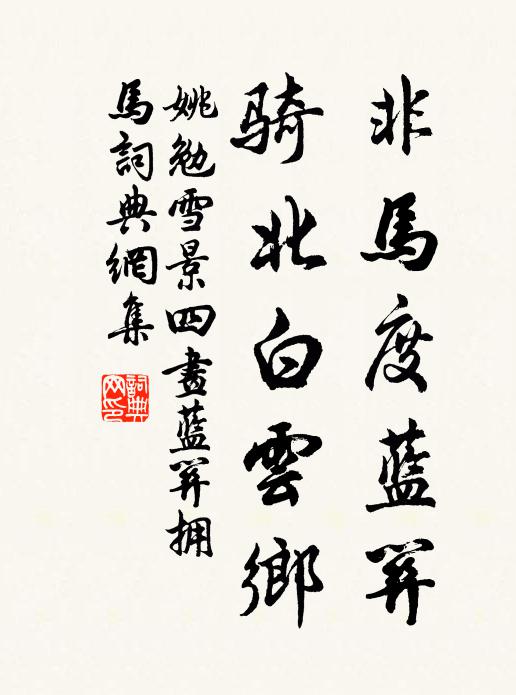 非馬度藍關
騎北白雲鄉
姚勉雪景四畫藍關拥
馬詞典網集
詞典
网印